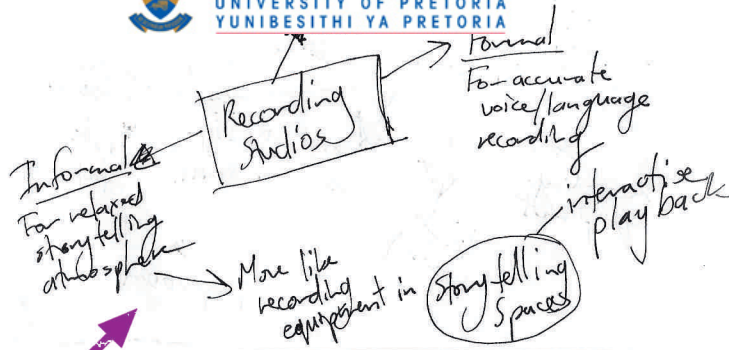 UNIVERSITY OF PRETORIA
YUNIBESITHI YA PRETORIA
Recording
Studios
Formal
For accurate
voice/language
recording
Informal
For relaxed
storytelling
atmosphere
More like
recording
equipment in
Storytelling
Spaces
interactive
play back